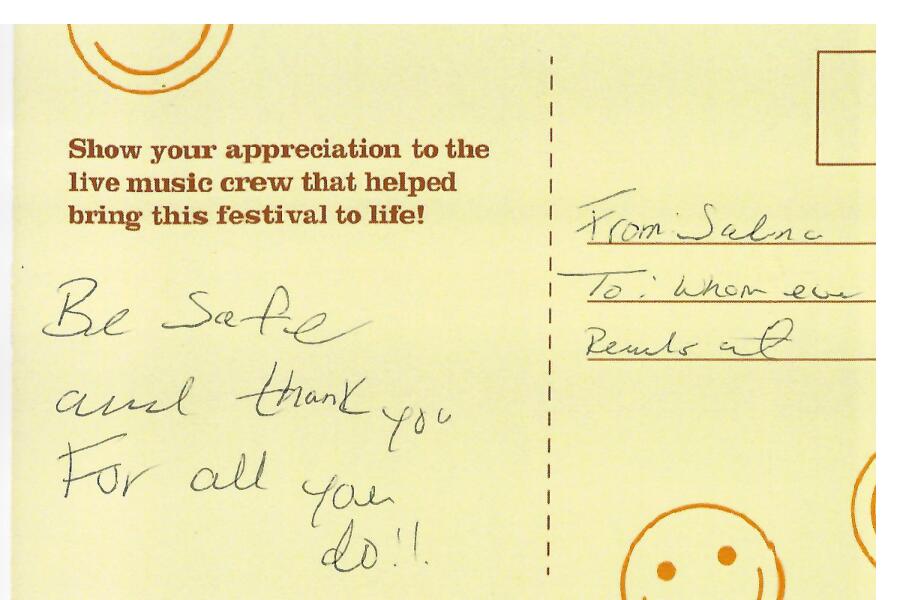 Show your appreciation to the
live music crew that helped
bring this festival to life!
Be Safe
and thank you
For all you
do!!
From: Salina
To: Whom ever